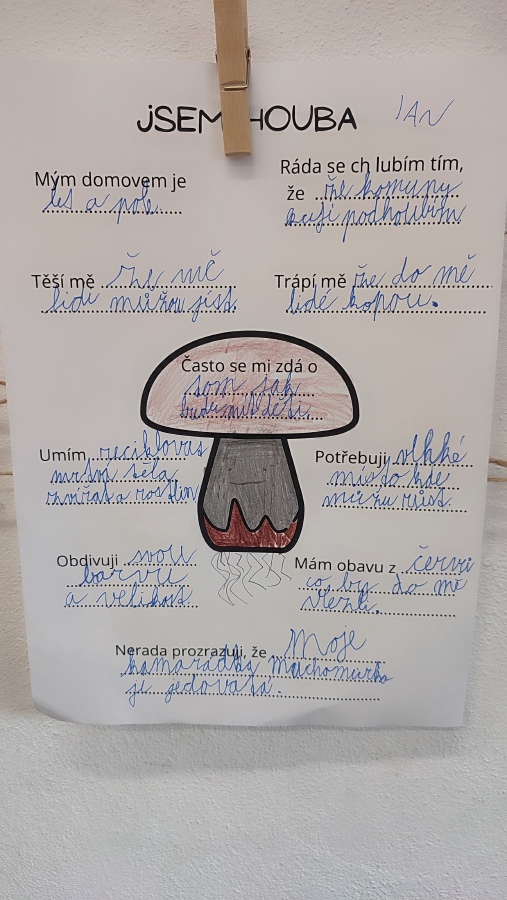 JSEM HOUBA
JAN
Mým domovem je
les a pole.
Ráda se ch lubím tím,
že že komuny
kují podhoubím
Těší mě že mě
lidi můžou jíst.
Trápí mě že do mě
lidé kopou.
Často se mi zdá o
som jak
budu mít děti.
Umím reciklovat
mrtvá těla
zvířat a rostlin
Potřebuji vlhké
místo kde
můžu růst
Obdivuji svou
barvu
a velikost
Mám obavu z červů
co by do mě
vlezli.
Nerada prozrazuji, že Moje
kamarádka Muchomůrka
je jedovatá.